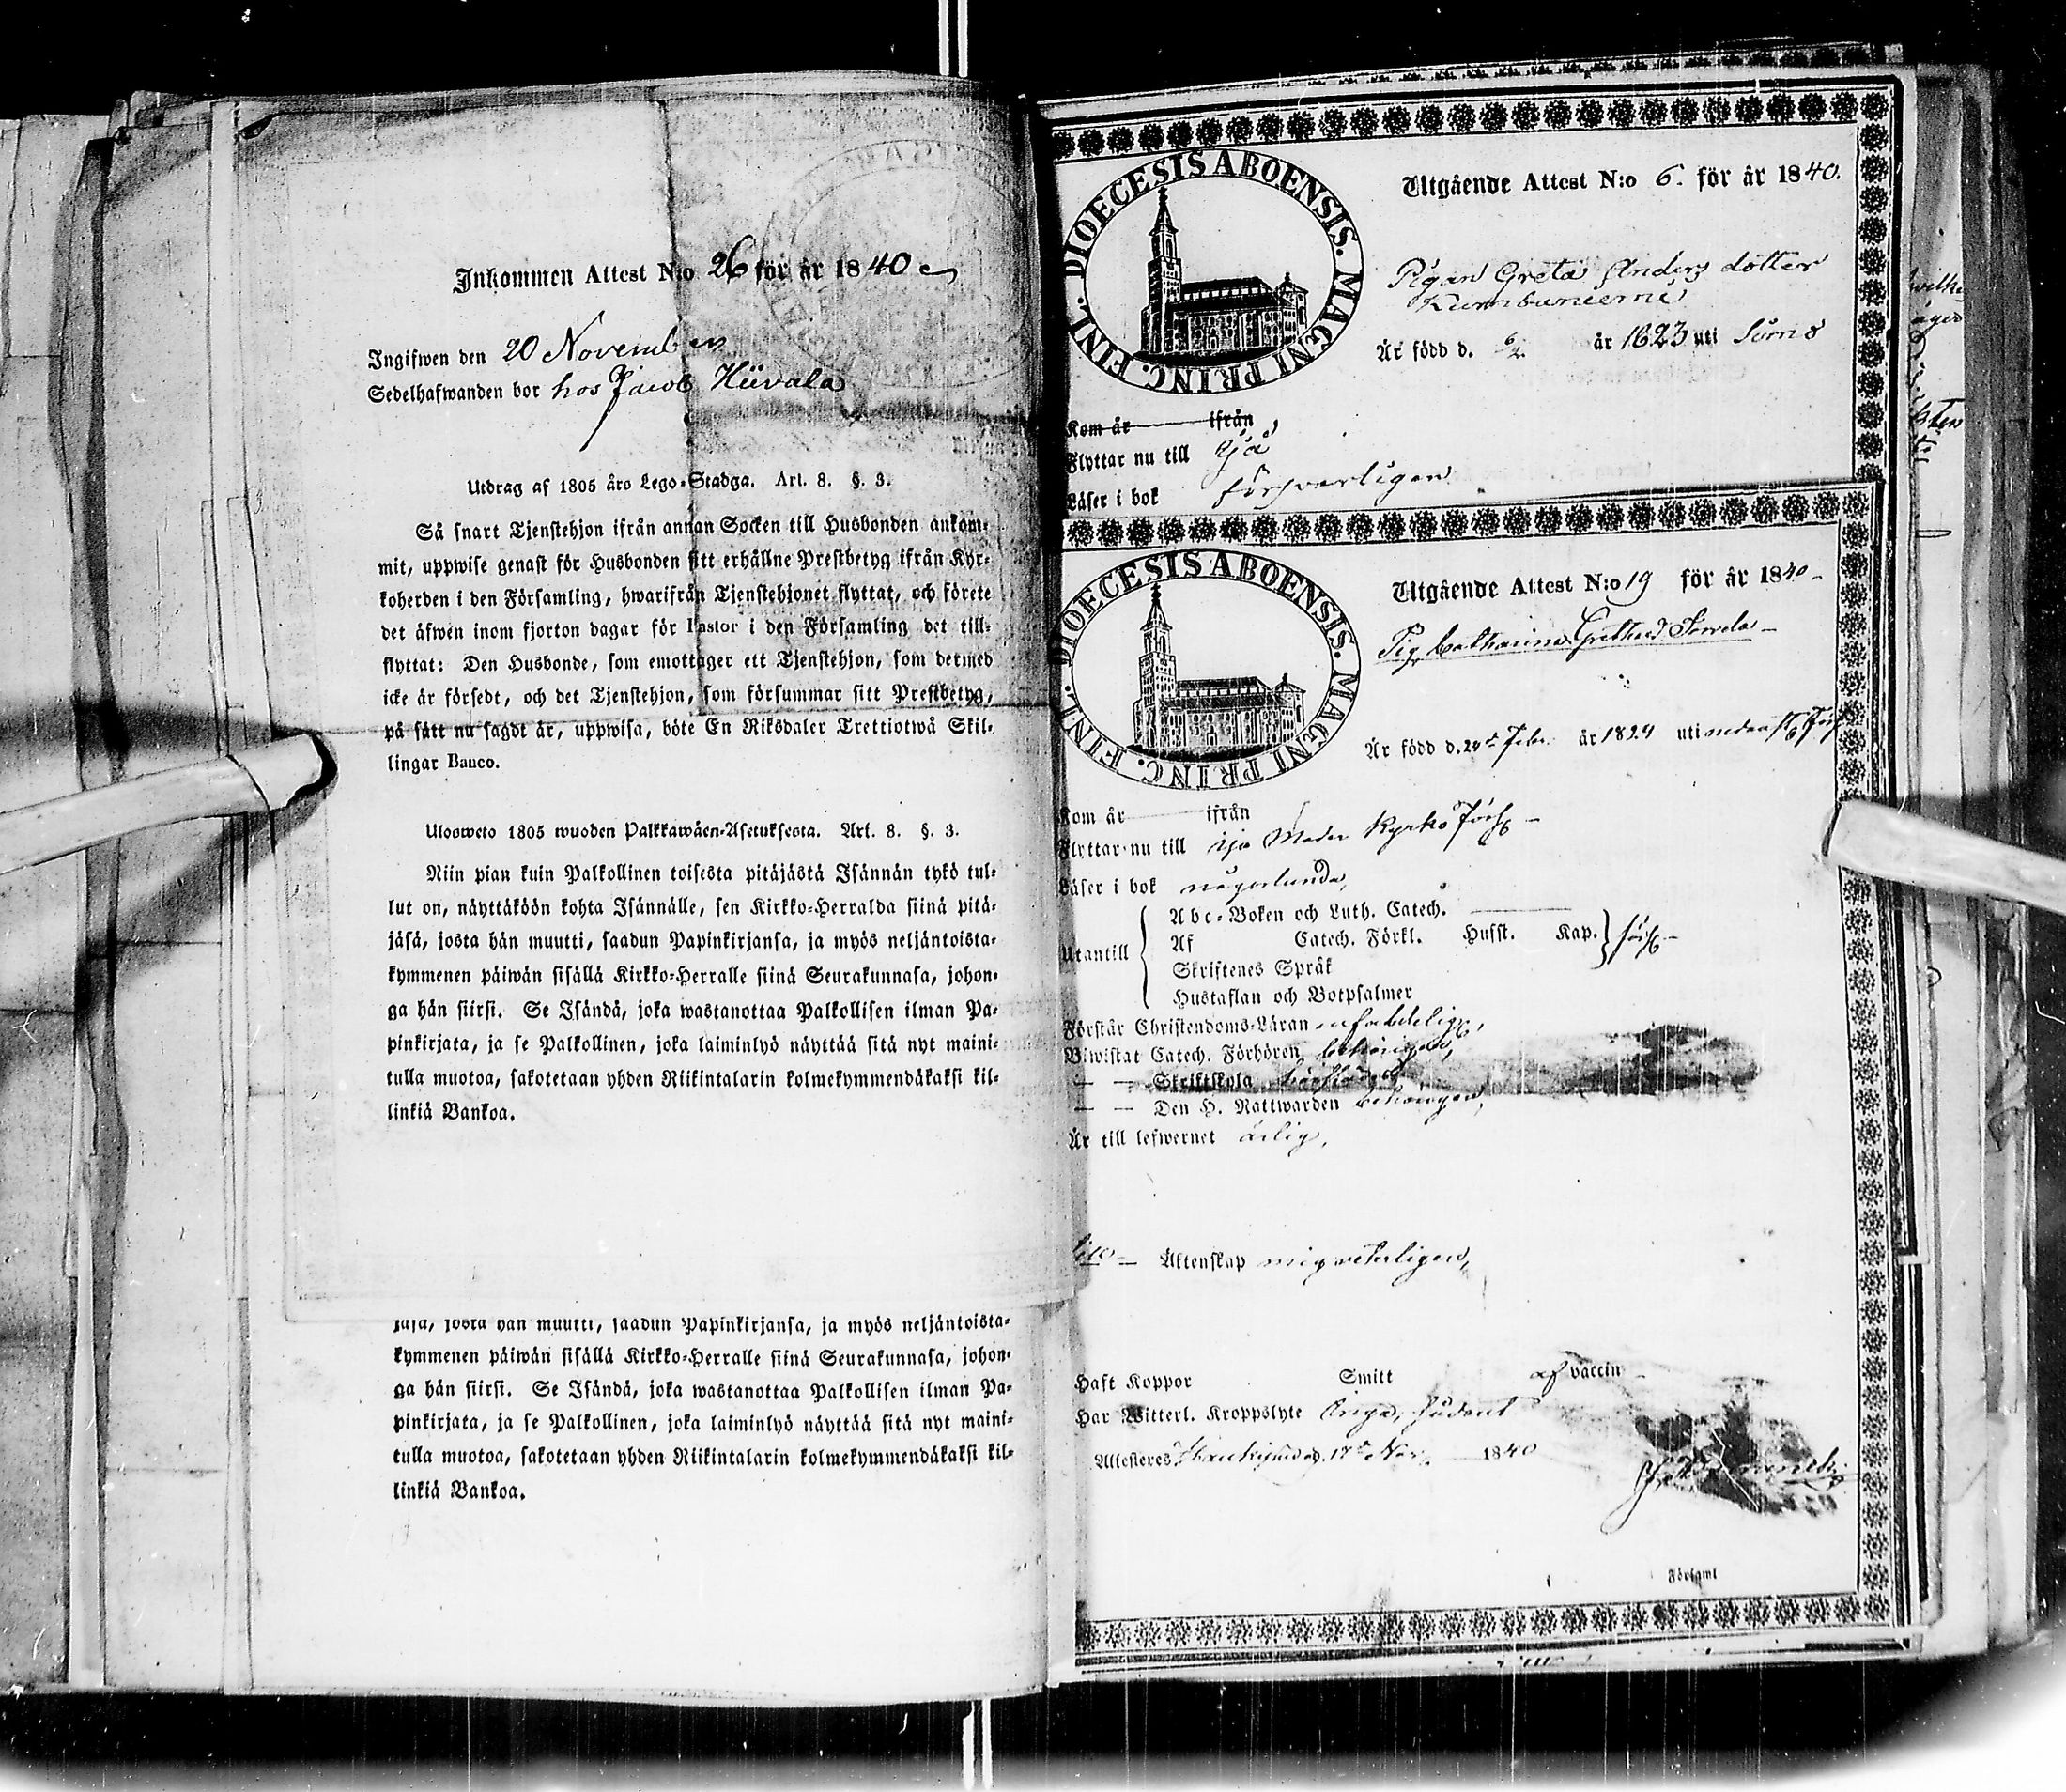 Inkommen Attest N:o 26 för år 1840
Ingifwen den 20 November
Sedelhafwanden bor hos Jacob Hiivala
Utdrag af 1805 års Lego-Stadga. Art. 8. §. 3.
Så snart Tjenstehjon ifrån annan Socken till Husbonden ankom-
mit, uppwise genast för Husbonden sitt erhållne Prestbetyg ifrån Kyr-
koherden i den Församling, hwarifrån Tjenstehjonet flyttat, och förete
det äfwen inom fjorton dagar för Pastor i den Församling det till-
flyttat: Den Husbonde, som emottager ett Tjenstehjon, som dermed
icke är försedt, och det Tjenstehjon, som försummar sitt Prestbetyg,
på sätt nu sagdt är, uppwisa, böte En Riksdaler Trettiotwå Skil-
lingar Banco.
Ulosweto 1805 wuoden Palkkawäen-Asetuksesta. Art. 8. §. 3.
Niin pian kuin Palkollinen toisesta pitäjästä Isännän tykö tul-
lut on, näyttäköön kohta Isännälle, sen Kirkko-Herralda siinä pitä-
jäsä, josta hän muutti, saadun Papinkirjansa, ja myös neljäntoista-
kymmenen päiwän sisällä Kirkko-Herralle siinä Seurakunnasa, johon-
ga hän siirsi. Se Isändä, joka wastanottaa Palkollisen ilman Pa-
pinkirjata, ja se Palkollinen, joka laiminlyö näyttää sitä nyt maini-
tulla muotoa, sakotetaan yhden Riikintalarin kolmekymmendäkaksi kil-
linkiä Bankoa.
jäsä, josta hän muutti, saadun Papinkirjansa, ja myös neljäntoista-
kymmenen päiwän sisällä Kirkko-Herralle siinä Seurakunnasa, johon-
ga hän siirsi. Se Isändä, joka wastanottaa Palkollisen ilman Pa-
pinkirjata, ja se Palkollinen, joka laiminlyö näyttää sitä nyt maini-
tulla muotoa, sakotetaan yhden Riikintalarin kolmekymmendäkaksi kil-
linkiä Bankoa.
DIOECESIS ABOENSIS. MAGNI PRINC. FINL.
Utgående Attest N:o 6. för år 1840.
Pigan Greta Anders dotter
Är född d. 6/2 år 1823 uti Sómo
Kom år ifrån
Flyttar nu till Ijå
Läser i bok försvarligen
DIOECESIS ABOENSIS. MAGNI PRINC. FINL.
Utgående Attest N:o 19 för år 1840
Pig. Catharina Grethasd.
Är född d. 24de Febr. år 1824 uti
Kom år ifrån
Flyttar nu till Ijo Moder Kyrko Förs.
Läser i bok någorlunda,
Utantill
Abc-Boken och Luth. Catech.
Af Catech. Förkl. Husst. Kap.
Skriftenes Språk
Hustaflan och Botpsalmer
Förstår Christendoms-Läran
Biwistat Catech. Förhören behörigen,
— — Skriftskola
— — Den H. Nattwarden behörigen,
Är till lefwernet ärlig,
Äktenskap mig veterligen,
Haft Koppor Smitt af vaccin
Har Witterl. Kroppslyte Inga,
Attesteras Haukipudas 17de Nov. 1840
Församl